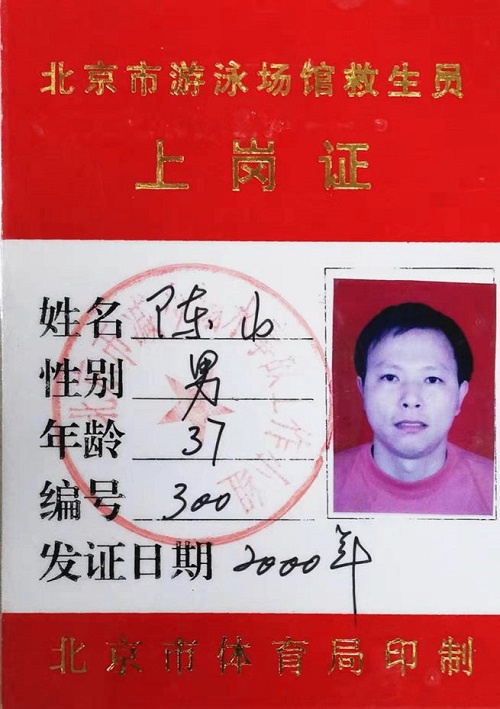 北京市游泳场馆救生员
上岗证
姓名 陈山
性别 男
年龄 37
编号 300
发证日期 2000年
北京市体育局印制